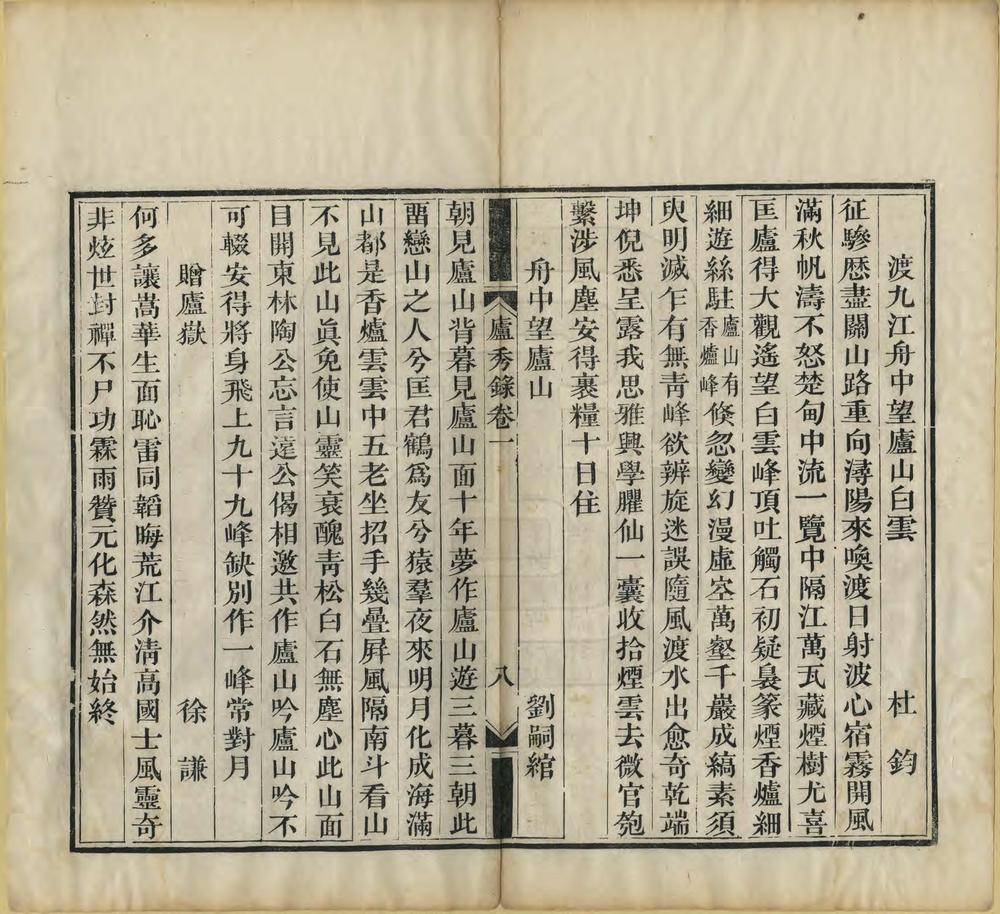 渡九江舟中望廬山白雲　杜鈞
征驂厯盡關山路重向潯陽來喚渡日射波心宿霧開風
滿秋帆濤不怒楚甸中流一覽中隔江萬瓦藏煙樹尤喜
匡廬得大觀遙望白雲峰頂吐觸石初疑裊篆煙香爐細
細遊絲駐廬山有香爐峰倏忽變幻漫虛空萬壑千巖成縞素須
臾明滅乍有無青峰欲辨旋迷誤隨風渡水出愈奇乾端
坤倪悉呈露我思雅興學臞仙一囊收拾煙雲去微官匏
繫涉風塵安得裹糧十日住
舟中望廬山　劉嗣綰
廬秀錄卷一　八
朝見廬山背暮見廬山面十年夢作廬山遊三暮三朝此
畱戀山之人兮匡君鶴爲友兮猿羣夜來明月化成海滿
山都是香爐雲雲中五老坐招手幾疊屛風隔南斗看山
不見此山眞免使山靈笑衰醜靑松白石無塵心此山面
目開東林陶公忘言遠公偈相邀共作廬山吟廬山吟不
可輟安得將身飛上九十九峰缺別作一峰常對月
贈廬嶽　徐謙
何多讓嵩華生面恥雷同韜晦荒江介淸高國士風靈奇
非炫世封禪不尸功霖雨贊元化森然無始終